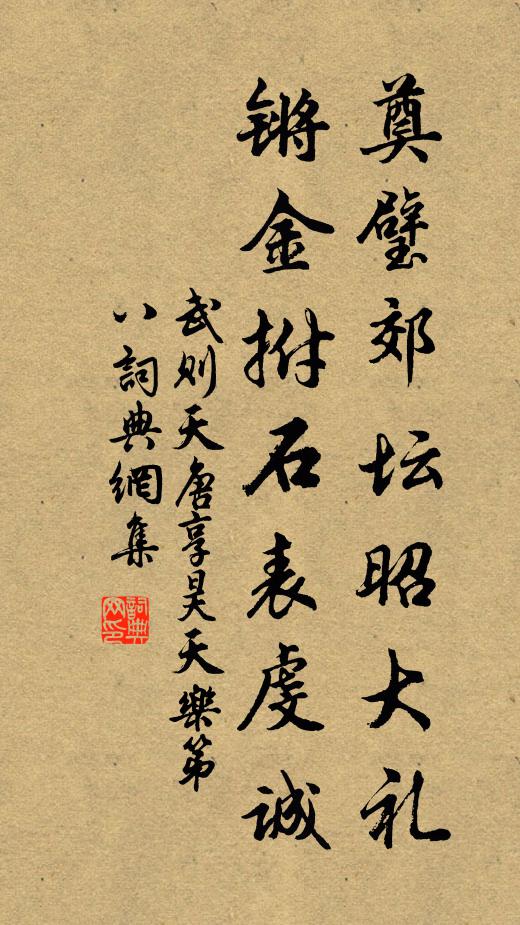 奠璧郊坛昭大礼
锵金拊石表虔诚
武则天唐享昊天樂第
八詞典網集
詞典网印